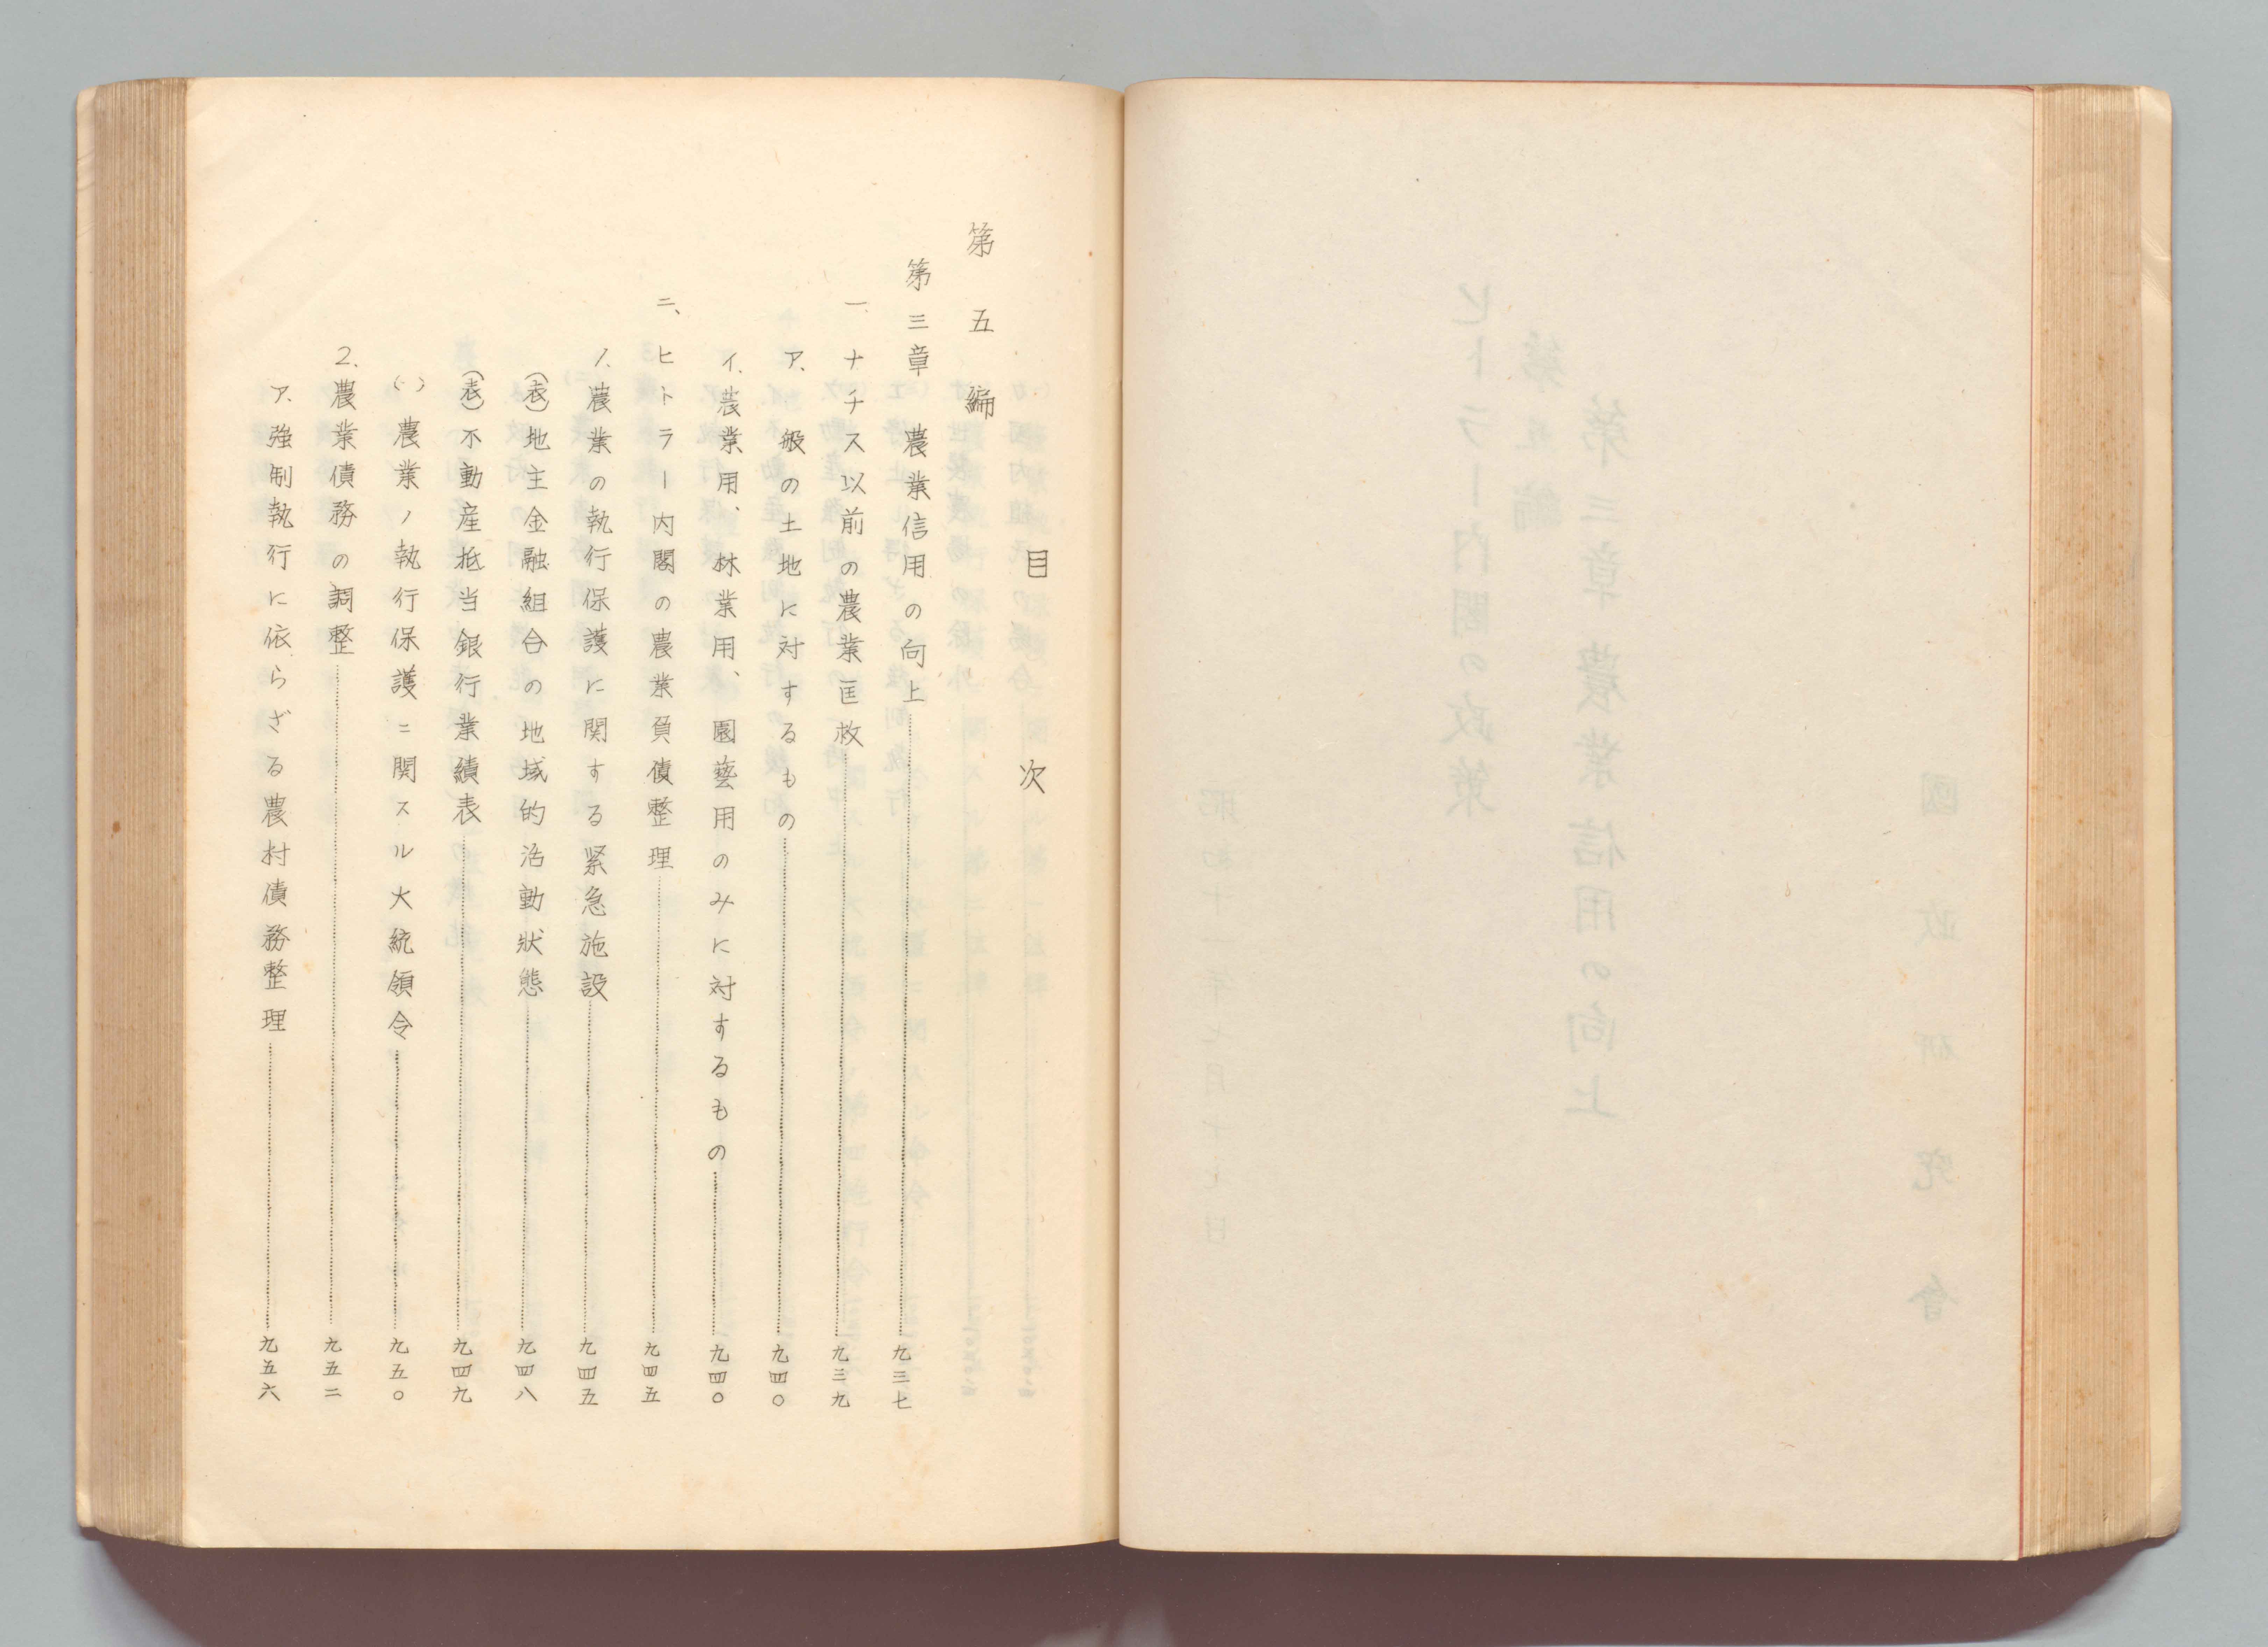 目次
第五編
第三章 農業信用の向上……九三七
一、ナチス以前の農業匡救……九三九
ア、般の土地に対するもの……九四〇
イ、農業用、林業用、園藝用のみに対するもの……九四〇
二、ヒトラー内閣の農業負債整理……九四五
1、農業の執行保護に関する緊急施設……九四五
(表)地主金融組合の地域的活動狀態……九四八
(表)不動産抵当銀行業績表……九四九
(一)農業ノ執行保護ニ関スル大統領令……九五〇
2、農業債務の調整……九五二
ア、強制執行に依らざる農村債務整理……九五六